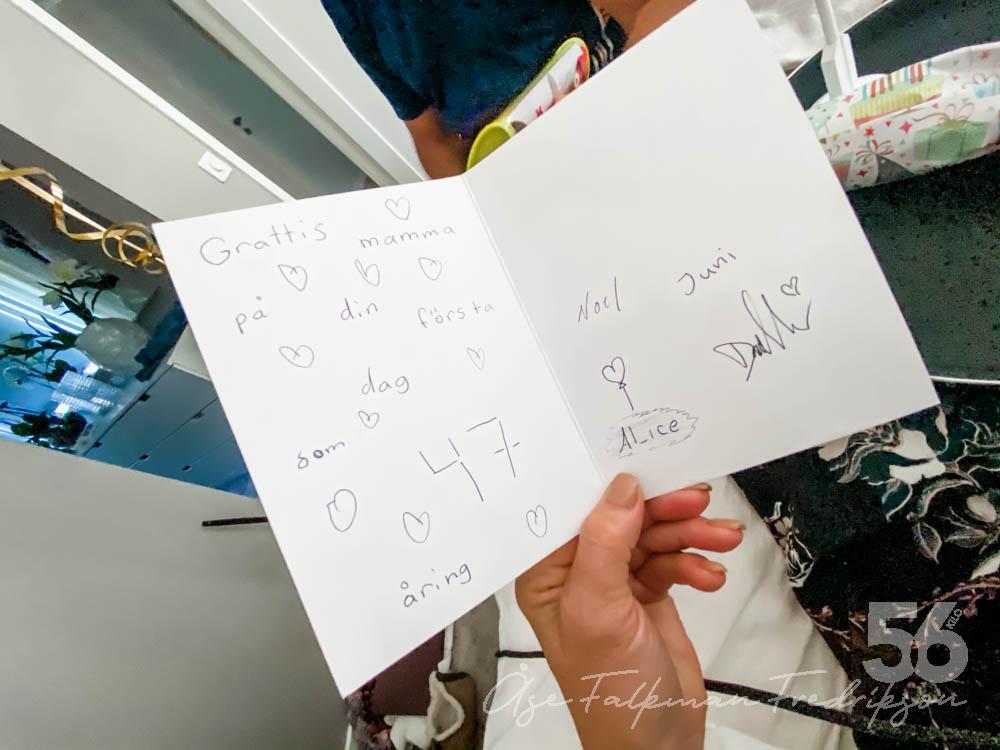 Grattis mamma
på din första
dag
som 47
åring
Noel Juni
ALICE
56
KILO
Åse Falkman Fredrikson